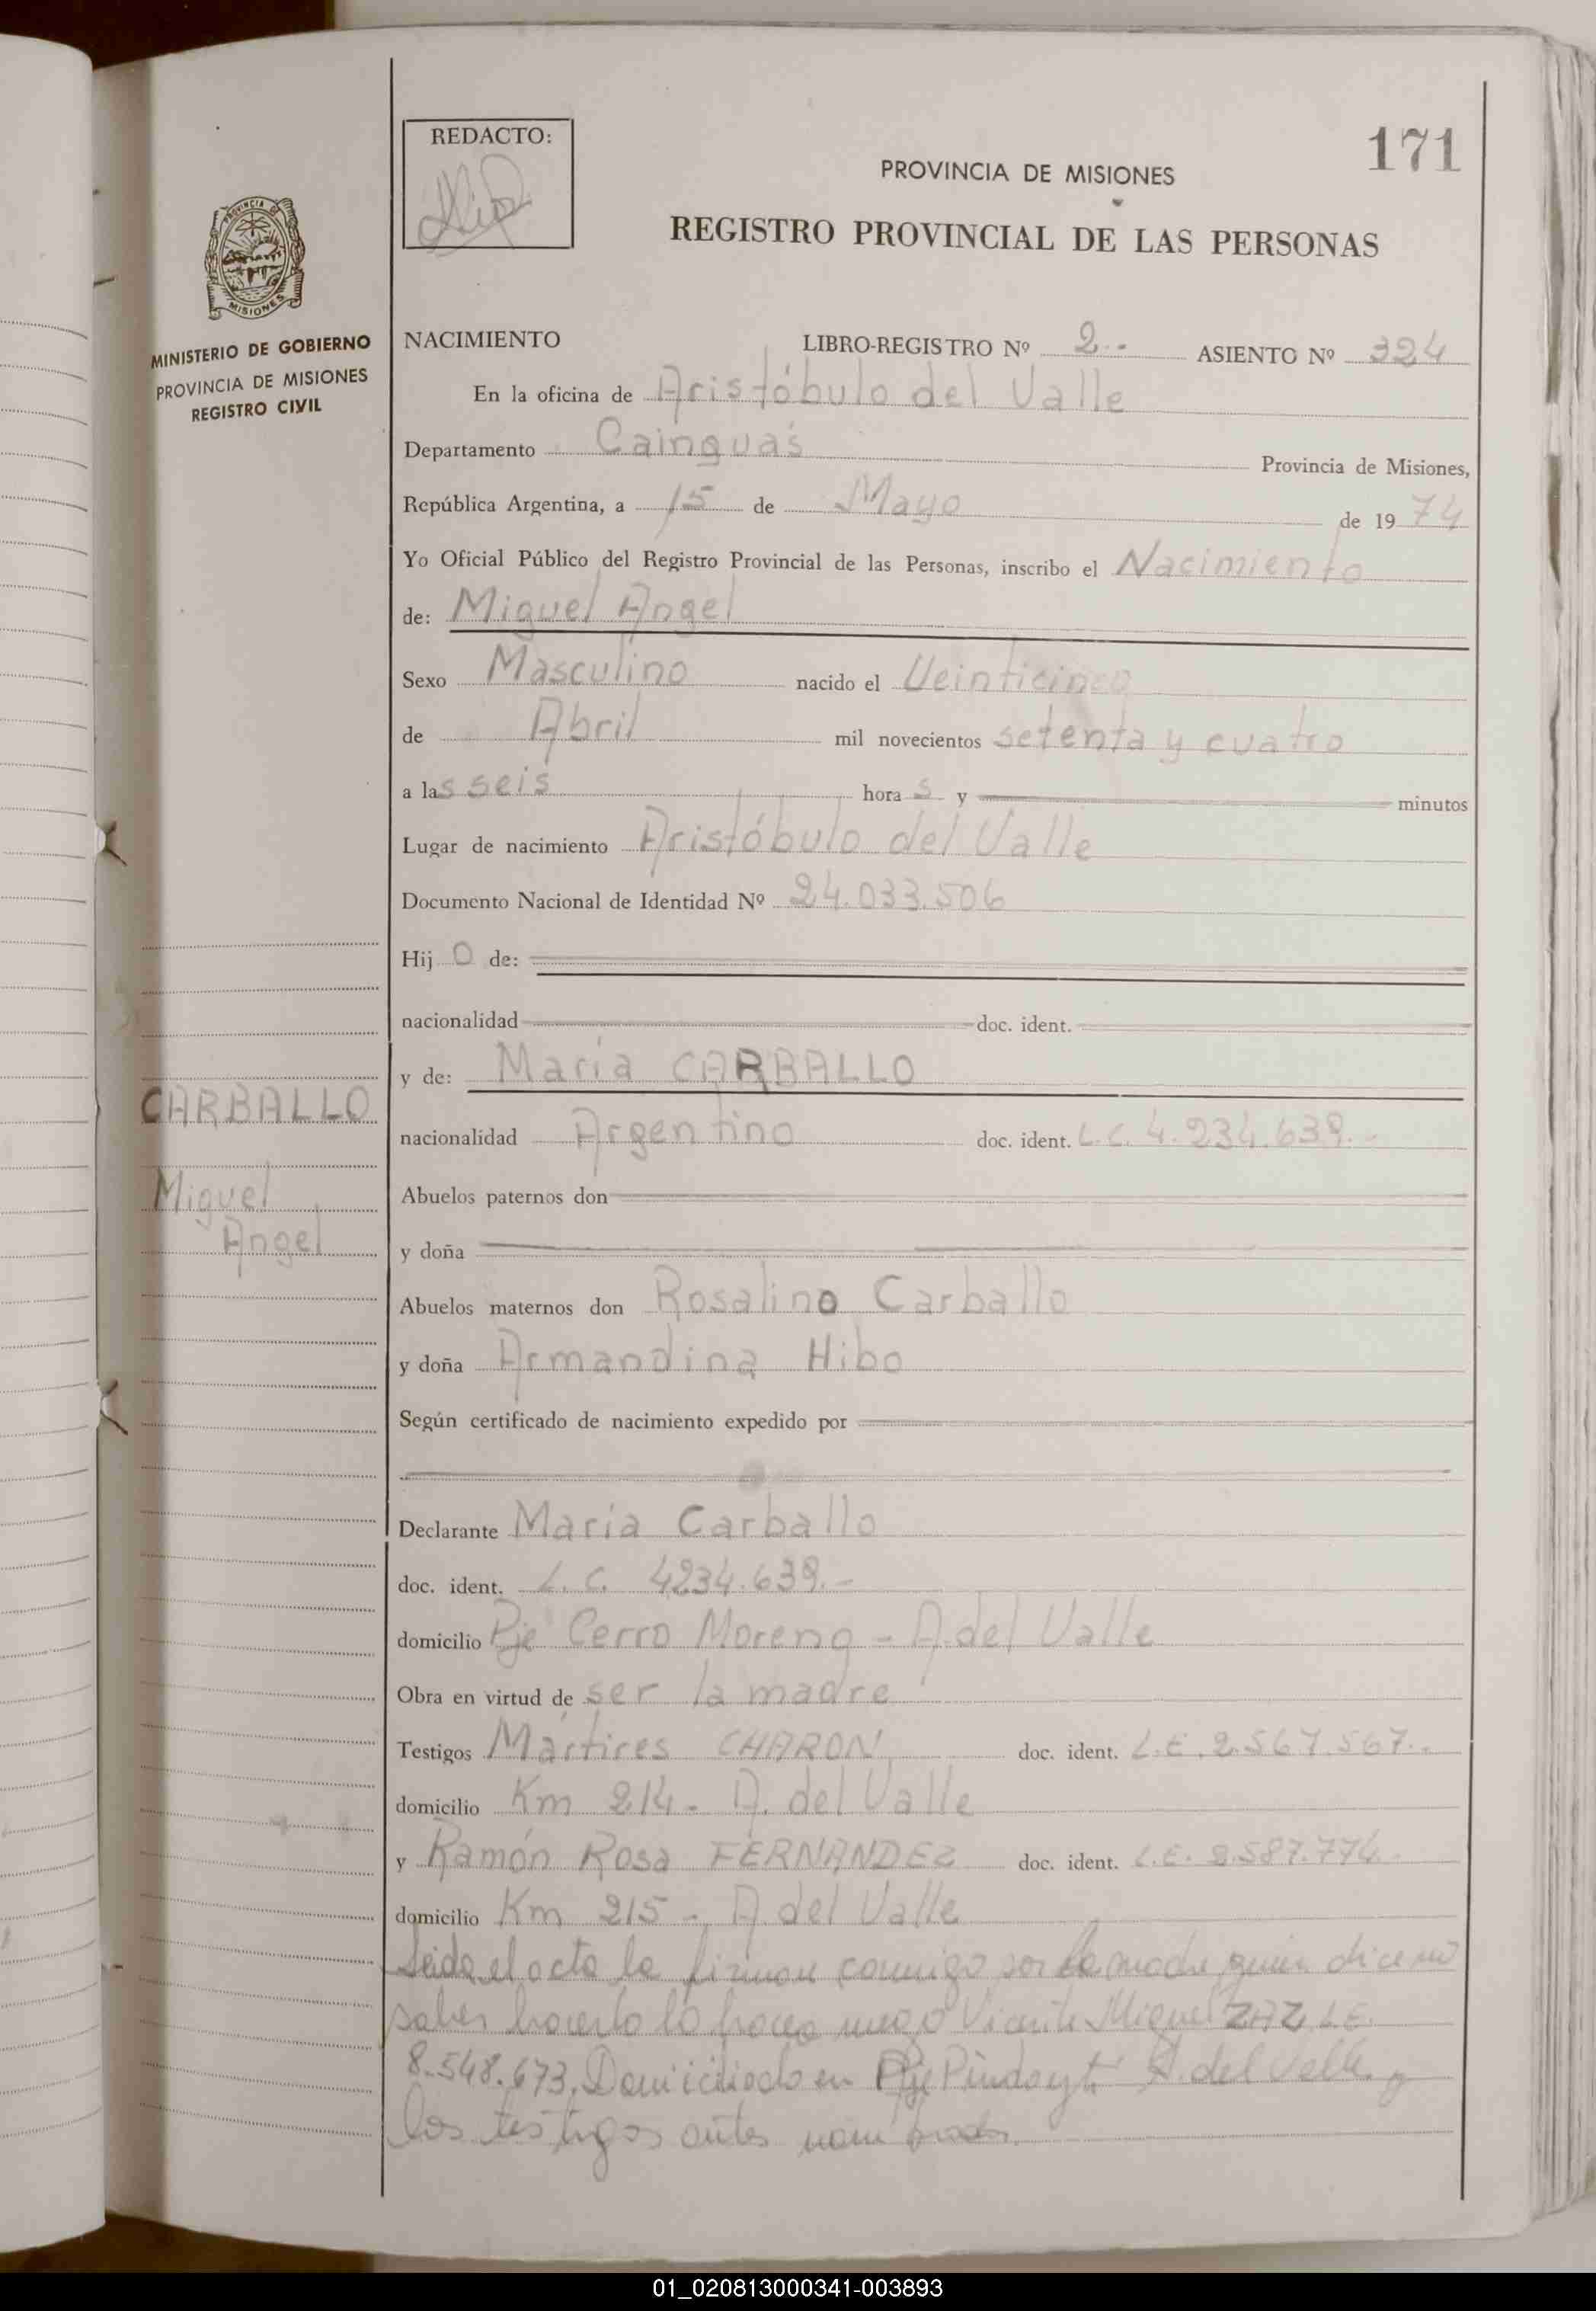 REDACTO:
171
PROVINCIA DE MISIONES
REGISTRO PROVINCIAL DE LAS PERSONAS
PROVINCIA DE
MISIONES
MINISTERIO DE GOBIERNO
PROVINCIA DE MISIONES
REGISTRO CIVIL
NACIMIENTO LIBRO-REGISTRO Nº 2.- ASIENTO Nº 324
En la oficina de Aristóbulo del Valle
Departamento Cainguás Provincia de Misiones,
República Argentina, a 15 de Mayo de 1974
Yo Oficial Público del Registro Provincial de las Personas, inscribo el Nacimiento
de: Miguel Angel
Sexo Masculino nacido el Veinticinco
de Abril mil novecientos setenta y cuatro
a las seis horas y minutos
Lugar de nacimiento Aristóbulo del Valle
Documento Nacional de Identidad Nº 24.033.506
Hijo de:
nacionalidad doc. ident.
y de: María CARBALLO
CARBALLO
nacionalidad Argentino doc. ident. L.C. 4.234.639.-
Miguel
Angel
Abuelos paternos don
y doña
Abuelos maternos don Rosalino Carballo
y doña Armandina Hibo
Según certificado de nacimiento expedido por
Declarante María Carballo
doc. ident. L.C. 4234.639.-
domicilio Pje Cerro Moreno - A. del Valle
Obra en virtud de ser la madre
Testigos Mártires CHARON doc. ident. L.E. 2.567.567.-
domicilio Km 214 - A. del Valle
y Ramón Rosa FERNANDEZ doc. ident. L.E. 2.587.774.-
domicilio Km 215 - A. del Valle
Leida el acta la firman conmigo por la madre quien dice no
saber hacerlo lo hace Vicente Miguel ZAZ L.E.
8.548.673. Domiciliado en Pje Pindayti A. del Valle y
los testigos antes nombrados.
01_020813000341-003893